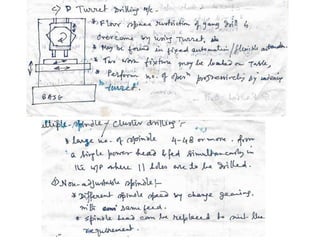 c) D Turret Drilling m/c.
* Floor space restriction of gang drill is
overcome by using Turret.
* May be found in fixed automation/flexible automation.
* Two work fixture may be loaded on Table,
* Perform no. of opern progressively by indexing
turret.
BASE
ultiple-spindle/ Cluster drilling:-
* Large no. of spindle 4-48 or more. from
a single power head & fed simultaneously in
the w/p where 11 holes are to be drilled.
Non-adjustable spindle:-
* Different spindle speed by change gearing.
with same feed.
* Spindle head can be replaced to suit the
requirement.